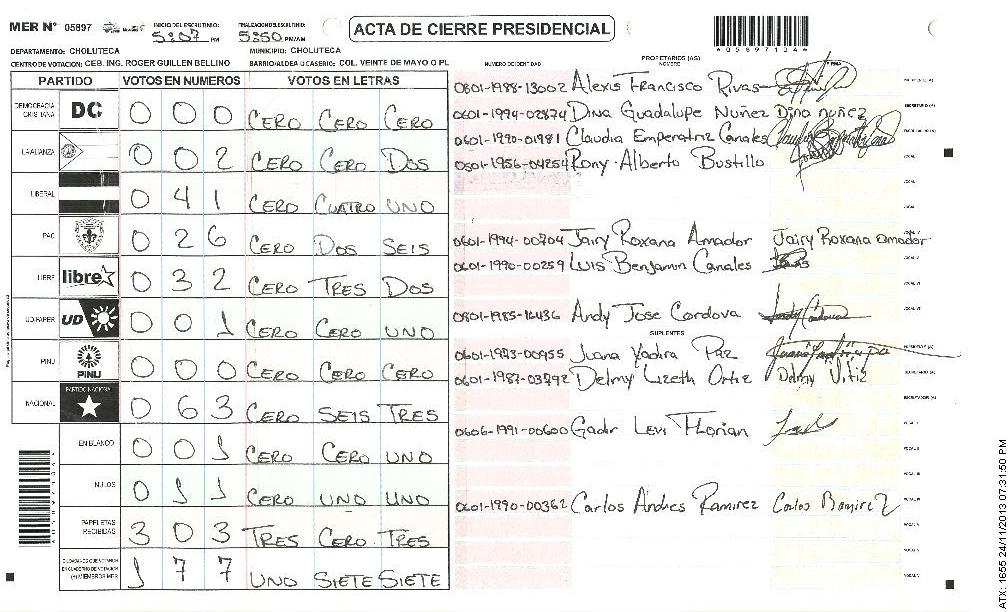 MER N° 05897 INICIO DEL ESCRUTINIO: 5:07 PM FINALIZACION ESCRUTINIO: 5:50 PM/AM ACTA DE CIERRE PRESIDENCIAL
DEPARTAMENTO: CHOLUTECA MUNICIPIO: CHOLUTECA
CENTRO DE VOTACION: CEB. ING. ROGER GUILLEN BELLINO BARRIO/ALDEA O CASERIO: COL. VEINTE DE MAYO O PL
PARTIDO VOTOS EN NUMEROS VOTOS EN LETRAS
DEMOCRACIA CRISTIANA DC 0 0 0 CERO CERO CERO
LA ALIANZA 0 0 2 CERO CERO DOS
LIBERAL 0 4 1 CERO CUATRO UNO
PAC 0 2 6 CERO DOS SEIS
LIBRE libre 0 3 2 CERO TRES DOS
UD/FAPER UD 0 0 1 CERO CERO UNO
PINU PINU 0 0 0 CERO CERO CERO
NACIONAL PARTIDO NACIONAL 0 6 3 CERO SEIS TRES
EN BLANCO 0 0 1 CERO CERO UNO
NULOS 0 1 1 CERO UNO UNO
PAPELETAS RECIBIDAS 3 0 3 TRES CERO TRES
CIUDADANOS QUE VOTARON EN CUADERNO DE VOTACION (+) MIEMBROS MER 1 7 7 UNO SIETE SIETE
PROPIETARIOS (AS)
NUMERO DE IDENTIDAD NOMBRE FIRMA
0601-1988-13002 Alexis Francisco Rivas
0601-1994-02874 Dina Guadalupe Nuñez Dina nuñez
0601-1990-01981 Claudia Emperatriz Canales
0501-1956-04254 Rony Alberto Bustillo
0601-1994-00704 Jairy Roxana Amador Jairy Roxana amador
0601-1990-00259 Luis Benjamin Canales
0801-1985-16436 Andy Jose Cordova
SUPLENTES
0601-1983-00955 Juana Yadira Paz
0601-1987-03792 Delmy Lizeth Ortiz Delmy
0606-1991-00600 Gadir Levi Florian
0601-1990-00362 Carlos Andres Ramirez Carlos Ramirez
A05897104A
ATX: 1655 24/11/2013 07:31:50 PM